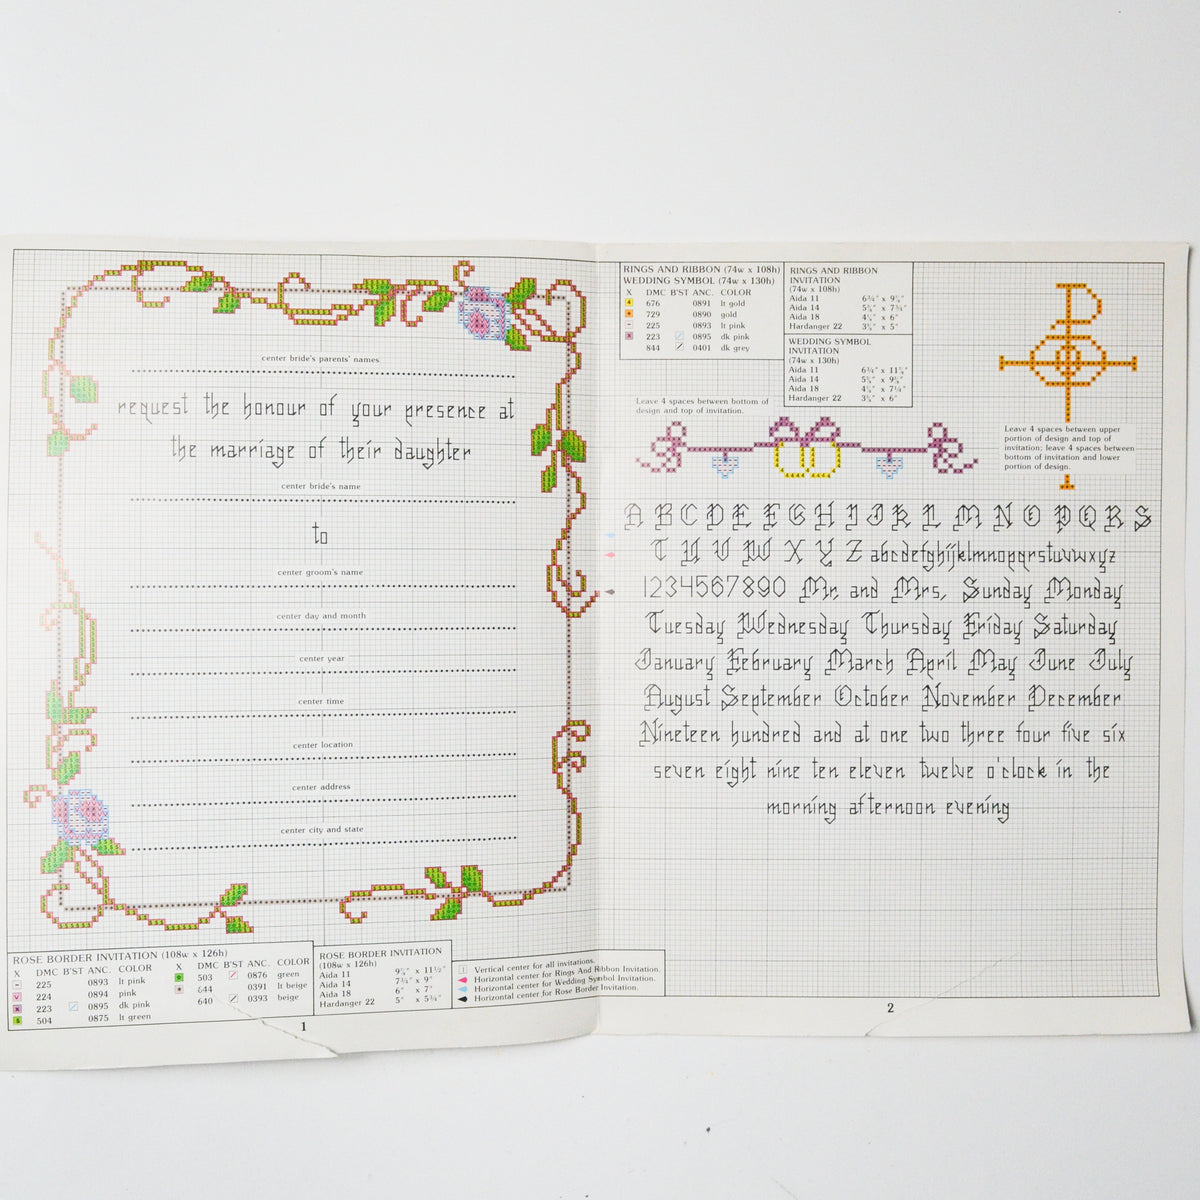 center bride's parents' names
request the honour of your presence at
the marriage of their daughter
center bride's name
to
center groom's name
center day and month
center year
center time
center location
center address
center city and state
ROSE BORDER INVITATION (108w x 126h)
X DMC B'ST ANC. COLOR
225 0893 lt pink
224 0894 pink
223 0895 dk pink
504 0875 lt green
X DMC B'ST ANC. COLOR
503 0876 green
644 0391 lt beige
640 0393 beige
ROSE BORDER INVITATION
(108w x 126h)
Aida 11 9⅞" x 11½"
Aida 14 7¾" x 9"
Aida 18 6" x 7"
Hardanger 22 5" x 5¾"
1
RINGS AND RIBBON (74w x 108h)
WEDDING SYMBOL (74w x 130h)
X DMC B'ST ANC. COLOR
676 0891 lt gold
729 0890 gold
225 0893 lt pink
223 0895 dk pink
844 0401 dk grey
RINGS AND RIBBON
INVITATION
(74w x 108h)
Aida 11 6¾" x 9⅞"
Aida 14 5⅜" x 7¾"
Aida 18 4⅛" x 6"
Hardanger 22 3⅜" x 5"
WEDDING SYMBOL
INVITATION
(74w x 130h)
Aida 11 6¾" x 11⅞"
Aida 14 5⅜" x 9⅜"
Aida 18 4⅛" x 7¼"
Hardanger 22 3⅜" x 6"
Leave 4 spaces between bottom of
design and top of invitation.
Leave 4 spaces between upper
portion of design and top of
invitation; leave 4 spaces between
bottom of invitation and lower
portion of design.
A B C D E F G H I J K L M N O P Q R S
T U V W X Y Z abcdefghijklmnopqrstuvwxyz
1234567890 Mr. and Mrs. Sunday Monday
Tuesday Wednesday Thursday Friday Saturday
January February March April May June July
August September October November December
Nineteen hundred and at one two three four five six
seven eight nine ten eleven twelve o'clock in the
morning afternoon evening
Vertical center for all invitations.
Horizontal center for Rings And Ribbon Invitation.
Horizontal center for Wedding Symbol Invitation.
Horizontal center for Rose Border Invitation.
2